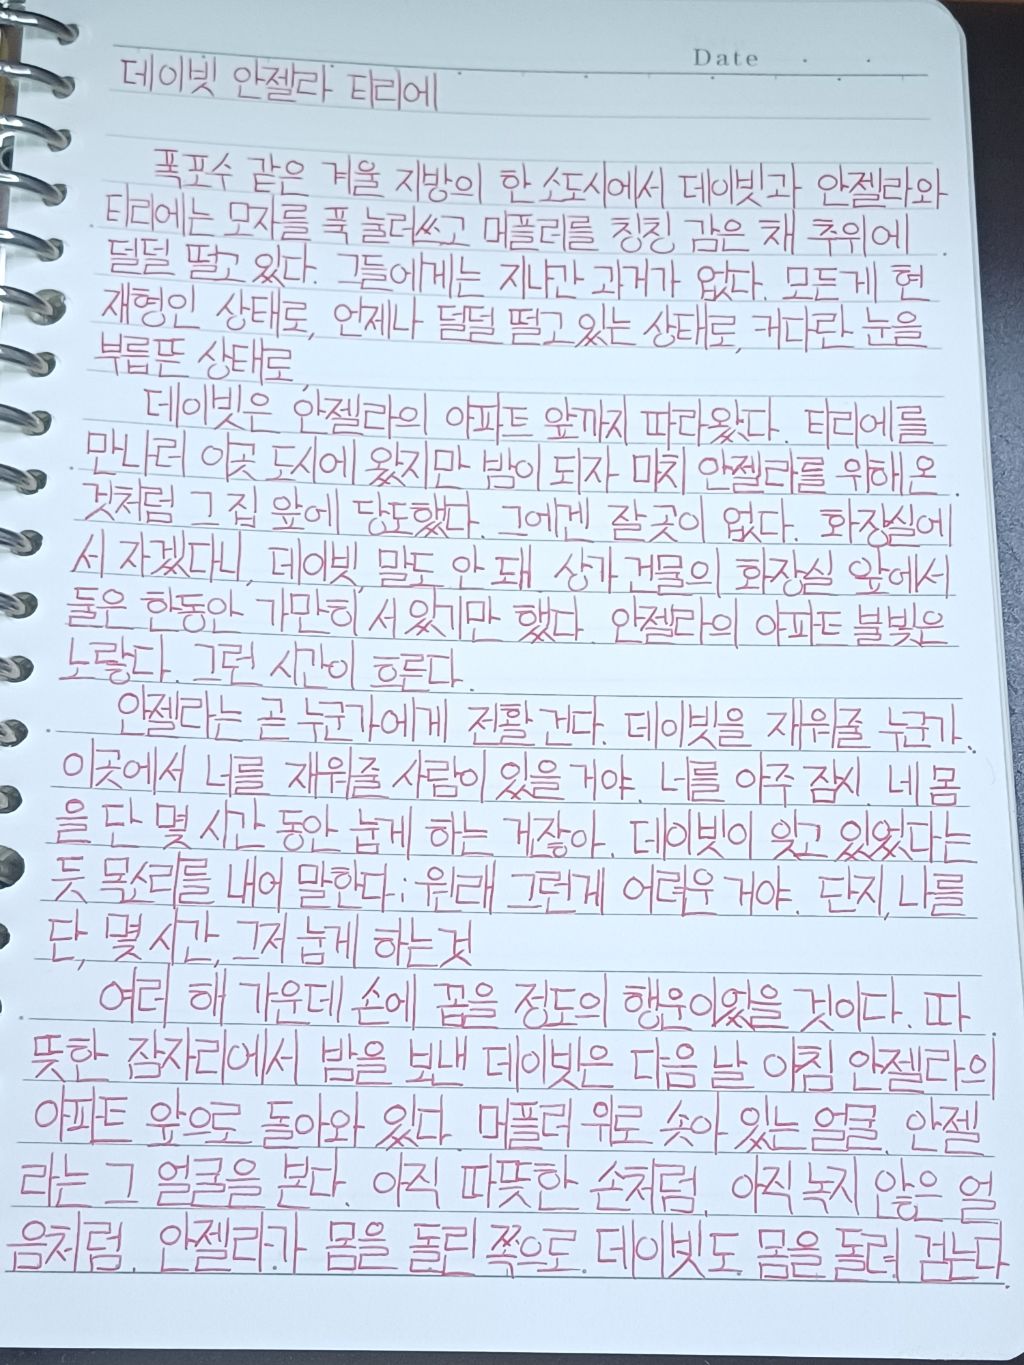 Date
데이빗 안젤라 티리에
폭포수 같은 겨울 지방의 한 소도시에서 데이빗과 안젤라와
티리에는 모자를 푹 눌러쓰고 머플러를 칭칭 감은 채 추위에
덜덜 떨고 있다. 그들에게는 지나간 과거가 없다. 모든 게 현
재형인 상태로, 언제나 덜덜 떨고 있는 상태로, 커다란 눈을
부릅뜬 상태로,
데이빗은 안젤라의 아파트 앞까지 따라왔다. 티리에를
만나러 이곳 도시에 왔지만 밤이 되자 마치 안젤라를 위해 온
것처럼 그 집 앞에 당도했다. 그에겐 잘 곳이 없다. 화장실에
서 자겠다니, 데이빗, 말도 안 돼. 상가 건물의 화장실 앞에서
둘은 한동안 가만히 서 있기만 했다. 안젤라의 아파트 불빛은
노랗다. 그런 시간이 흐른다.
안젤라는 곧 누군가에게 전활 건다. 데이빗을 재워줄 누군가.
이곳에서 너를 재워줄 사람이 있을 거야. 너를 아주 잠시. 네 몸
을 단 몇 시간 동안 눕게 하는 게잖아. 데이빗이 잊고 있었다는
듯 목소리를 내어 말한다; 원래 그런 게 어려운 거야. 단지, 나를
단, 몇 시간, 그저 눕게 하는 것
여러 해 가운데 손에 꼽을 정도의 행운이었을 것이다. 따
뜻한 잠자리에서 밤을 보낸 데이빗은 다음 날 아침 안젤라의
아파트 앞으로 돌아와 있다. 머플러 위로 솟아 있는 얼굴. 안젤
라는 그 얼굴을 본다. 아직 따뜻한 손처럼, 아직 녹지 않은 얼
음처럼. 안젤라가 몸을 돌린 쪽으로. 데이빗도 몸을 돌려 걷는다.